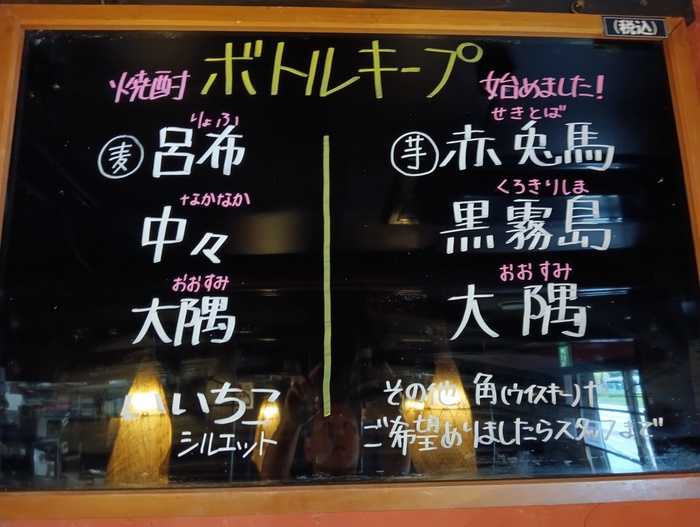 (税込)
焼酎 ボトルキープ 始めました!
りょふ
麦 呂布
なかなか
中々
おおすみ
大隅
いいちこ
シルエット
せきとば
芋 赤兎馬
くろきりしま
黒霧島
おおすみ
大隅
その他 角(ウイスキー)ナ
ご希望ありましたらスタッフまで